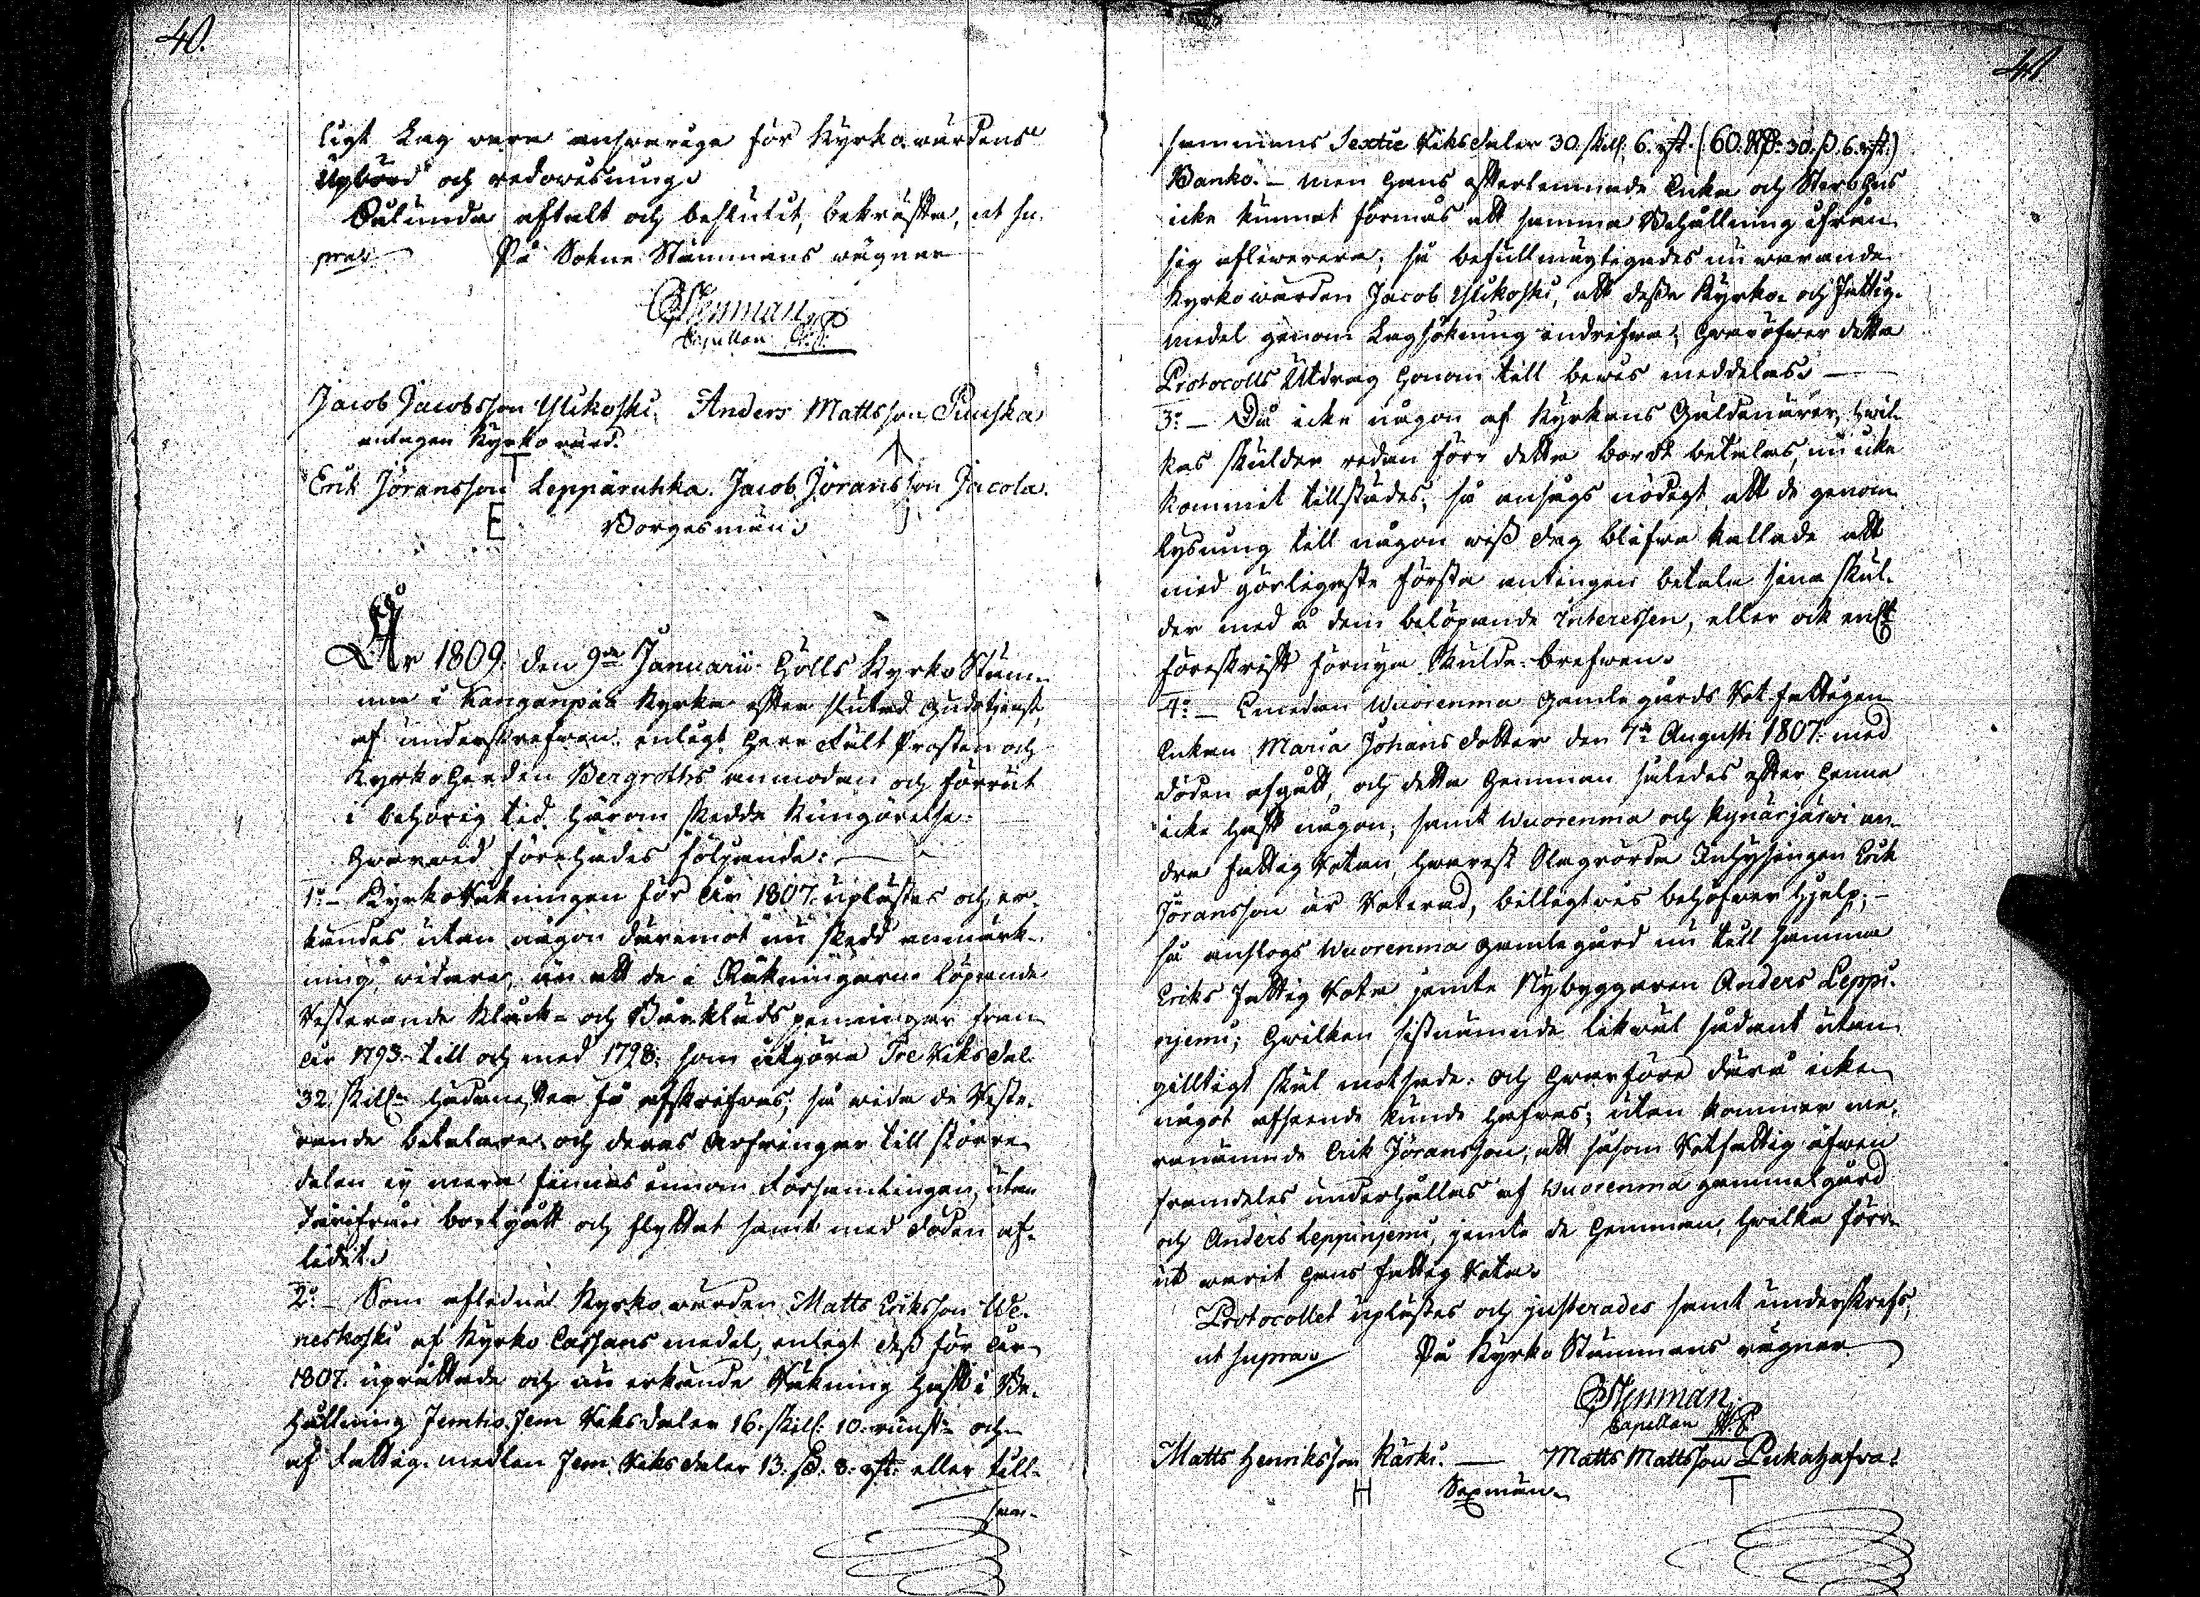 40.
ligt Lag vara answarige för Kyrkowärdens
Upbörd och redowisning.
Sålunda aftalt och beslutit, bekräfta, ut su-
pra. På Sokne Stämmans wägnar
Stenman
Capellan V.P.
Jacob Jacobsson Ylikoski. Anders Mattsson Puuska
antagen Kyrkovärd.
Erik Jöransson Lepparuhka. Jacob Jöransson Jacola.
E Borgesmän. J
År 1809. den 9de Januarii hölls Kyrko Stäm-
ma i Kanganpää Kyrka efter slutad Gudstjenst,
af underskrefwen enligt Herr Fält Prosten och
Kyrkoherden Bergroths anmodan och förrut
i behörig tid härom skedde kungörelse:
Hwarwid förehades följande:
1:o Kyrko Räkningen för År 1807. uplästes och er-
kändes utan någon däremot nu skedd anmärk-
ning, widare, än att de i Räkningarne löpande
Resterande Klock- och Bårklädspenningar från
År 1793. till och med 1798. som utgöra Tre Riksdal.
32. skill. hädanefter få afskrifvas, så wida de Reste-
rande betalare och deras Arfvingar till större
delen ej mera finnas innom Församlingen, utan
därifrån bortgått och flyttat samt med döden af-
lidit.
2:o Som aflednе Kyrkowärden Matts Eriksson We-
neskoski af Kyrko Cassans medel, enligt dess för År
1807. uprättade och nu erkände Räkning haft i Be-
hållning Femtio Fem Riksdaler 16. skill: 10. runst. och
af Fattig-medlen Fem Riksdaler 13. ß. 8. rst. eller till-
sam-
41
sammans Sextie Riksdaler 30. skill. 6. rst. (60. Rd. 30. ß. 6. rst.)
Banko. men hans efterlemnade Enka och Sterbhus
icke kunnat förmås att samma Behållning ifrån
sig aflewerera; så befullmägtigades nu warande
Kyrkowärden Jacob Ylikoski, att dessa Kyrko- och Fattig-
medel genom Lagsökning indrifwa; hwaröfwer detta
Protocolls Utdrag honom till bewis meddelas.
3:o Då icke någon af Kyrkans Gäldenärer, hwil-
kas skulder redan förr detta bordt betalas, nu icke
kommit tillstädes; så ansågs nödigt att de genom
Lysning till någon wiss dag blifwa kallade att
med görligaste första antingen betala sina skul-
der med å dem belöpande Interessen, eller ock enl.
föreskrift förnya Skulde-brefwen.
4:o Emedan Wuorenma Gamlegårds Rot-fattigen
Enkan Maria Johans dotter den 7de Augusti 1807. med
döden afgått, och detta Hemman således efter henne
icke haft någon, samt Wuorenma och Kynäsjärvi an-
dra fattig Rotan, hwarest Slagrörda Inhysingen Erik
Jöransson är Roterad, billigtwis behöfwer hjelp;
så anslogs Wuorenma Gamlegård nu till samma
Eriks Fattig Rota jemte Nybyggaren Anders Leppi-
njemi; hwilken sistnämnde likwäl sådant utan
gilltigt skäl motsade. och hwarföre därå icke
något afseende kunde hafvas; utan kommer me-
ranämnde Erik Jöransson, att såsom Rotfattig äfwen
framdeles underhållas af Wuorenma gammelgård
och Anders Leppinjemi, jemte de Hemman, hwilka förr-
ut warit hans Fattig Rota.
Protocollet uplästes och justerades samt underskrefs,
ut supra. På Kyrko Stämmans wägnar
Stenman
Capellan V.P.
Matts Henriksson Karki. Matts Mattsson Pukahafva.
H Sexmän. T